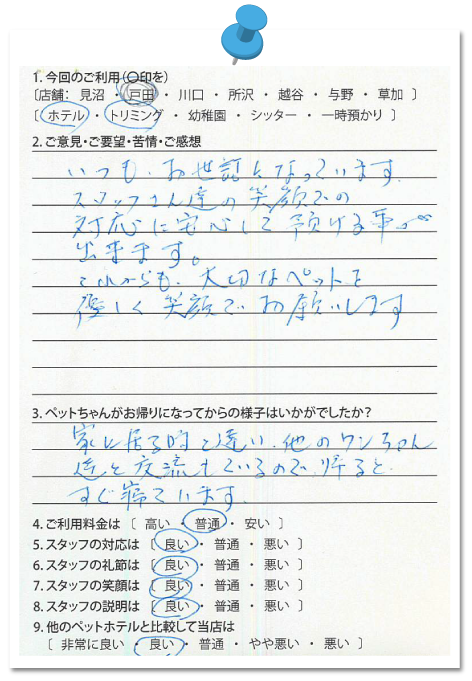 1. 今回のご利用(〇印を)
〔店舗： 見沼 ・ 戸田 ・ 川口 ・ 所沢 ・ 越谷 ・ 与野 ・ 草加 〕
〔 ホテル ・ トリミング ・ 幼稚園 ・ シッター ・ 一時預かり 〕
2. ご意見・ご要望・苦情・ご感想
いつも、お世話になっています。
スタッフさん達の笑顔での
対応に安心して預ける事が
出来ます。
これからも、大切なペットを
優しく笑顔でお願いします
3. ペットちゃんがお帰りになってからの様子はいかがでしたか？
家に居る時と違い、他のワンちゃん
達と交流もているので、帰ると
すぐ寝ています。
4. ご利用料金は 〔 高い ・ 普通 ・ 安い 〕
5. スタッフの対応は 〔 良い ・ 普通 ・ 悪い 〕
6. スタッフの礼節は 〔 良い ・ 普通 ・ 悪い 〕
7. スタッフの笑顔は 〔 良い ・ 普通 ・ 悪い 〕
8. スタッフの説明は 〔 良い ・ 普通 ・ 悪い 〕
9. 他のペットホテルと比較して当店は
〔 非常に良い ・ 良い ・ 普通 ・ やや悪い ・ 悪い 〕